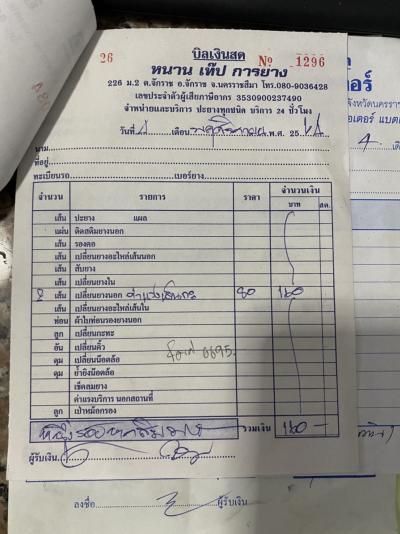 26 บิลเงินสด № 1296
หนาน เท๊ป การยาง
226 ม.2 ต.จักราช อ.จักราช จ.นครราชสีมา โทร.080-9036428
เลขประจำตัวผู้เสียภาษีอากร 3530900237490
จำหน่ายและบริการ ปะยางทุกชนิด บริการ 24 ชั่วโมง
วันที่ เดือน พฤศจิกายน พ.ศ. 25
นาม
ที่อยู่
ทะเบียนรถ เบอร์ยาง
จำนวน รายการ ราคา จำนวนเงิน
บาท สต.
เส้น ปะยาง แผล
แผ่น ติดสติมยางนอก
เส้น รองคอ
เส้น เปลี่ยนยางอะไหล่เส้นนอก
เส้น สับยาง
เส้น เปลี่ยนยางใน
2 เส้น เปลี่ยนยางนอก 80 160
เส้น เปลี่ยนยางอะไหล่เส้นใน
ท่อน ผ้าใบท่อนรองยางนอก
ลูก เปลี่ยนกะทะ
อัน เปลี่ยนคิ้ว
ตุม เปลี่ยนน๊อตล้อ 6695
ตุม ย้ำยิงน๊อตล้อ
เช็คลมยาง
ค่าแรงบริการ นอกสถานที่
ลูก เป่าหม้อกรอง
รวมเงิน 160 -
ผู้รับเงิน
ลงชื่อ ผู้รับเงิน
อร์
จังหวัดนครรา
อเตอร์ แบต
4 เดื